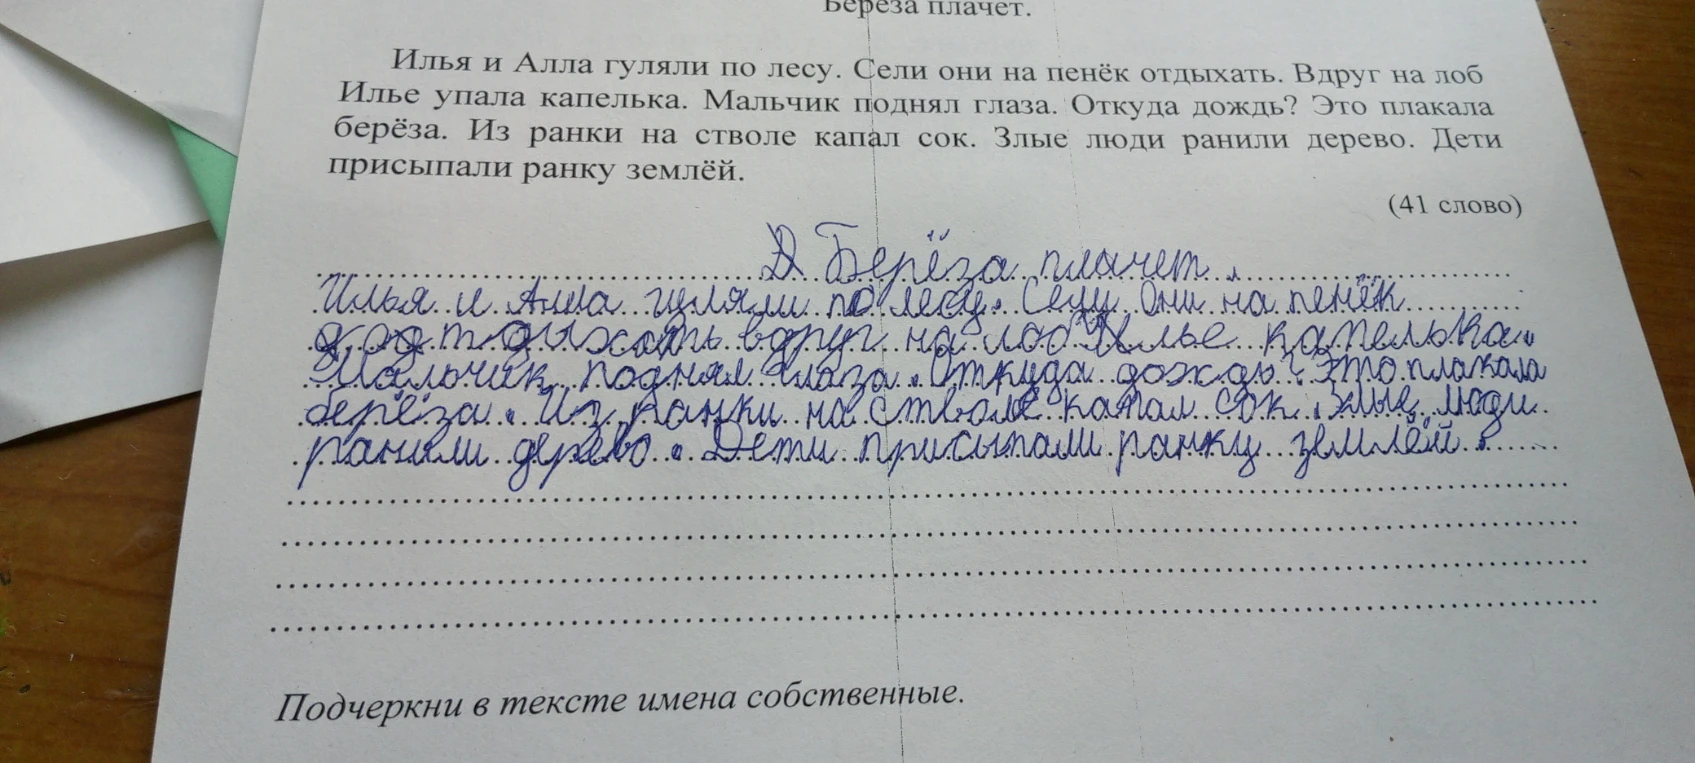 Берёза плачет.
Илья и Алла гуляли по лесу. Сели они на пенёк отдыхать. Вдруг на лоб
Илье упала капелька. Мальчик поднял глаза. Откуда дождь? Это плакала
берёза. Из ранки на стволе капал сок. Злые люди ранили дерево. Дети
присыпали ранку землёй.
(41 слово)
Берёза плачет.
Илья и Алла гуляли по лесу. Сели они на пенёк
отдыхать вдруг на лоб Илье капелька.
Мальчик поднял глаза. Откуда дождь? Это плакала
берёза. Из ранки на стволе капал сок. Злые люди
ранили дерево. Дети присыпали ранку землёй.
Подчеркни в тексте имена собственные.